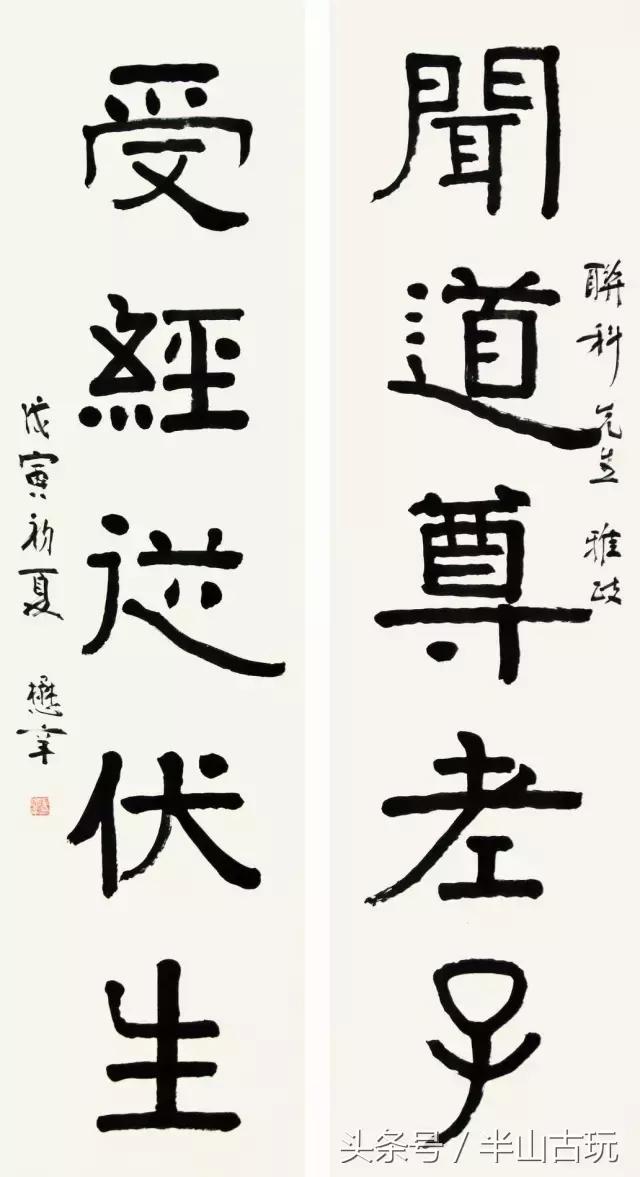 聞道尊老子
聯科先生 雅政
受經從伏生
戊寅初夏 懋
头条号 / 半山古玩